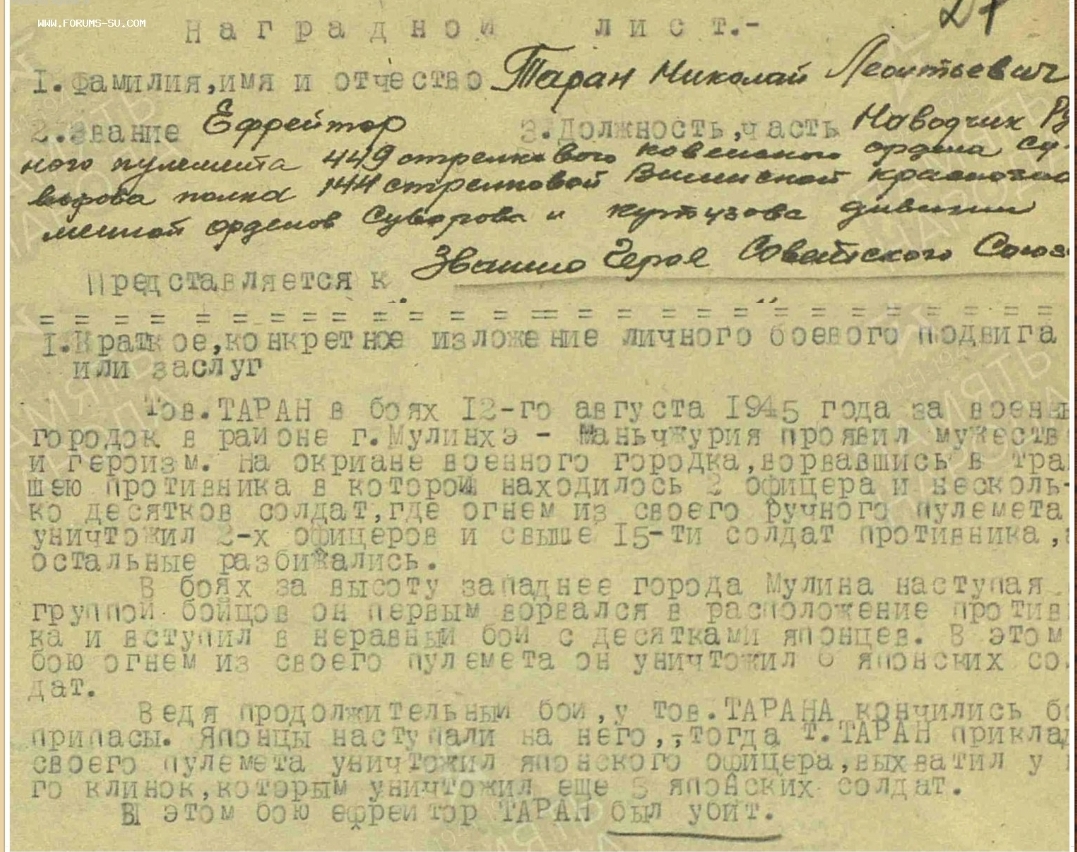 WWW.FORUMS-SU.COM
27
Наградной лист.-
I.Фамилия,имя и отчество Таран Николай Леонтьевич
2.Звание Ефрейтор 3.Должность,часть Наводчик Ру
ного пулемета 449 стрелкового ковенского ордена Су-
ворова полка 144 стрелковой Виленской краснозна
менной орденов Суворова и Кутузова дивизии
Представляется к Званию Героя Советского Союз
= = = = = = = = = = = = = = = = = = = = = = = = = =
I.Краткое,конкретное изложение личного боевого подвига
или заслуг
Тов.ТАРАН в боях 12-го августа 1945 года за военн
городок в районе г.Мулинхэ - Маньчжурия проявил мужеств
и героизм. На окриане военного городка,ворвавшись в тра
шею противника в которой находилось 2 офицера и несколь-
ко десятков солдат,где огнем из своего ручного пулемета
уничтожил 2-х офицеров и свыше 15-ти солдат противника,
остальные разбижались.
В боях за высоту западнее города Мулина наступая
группой бойцов он первым ворвался в расположение против
ка и вступил в неравный бой с десятками японцев. В этом
бою огнем из своего пулемета он уничтожил японских со
дат.
Ведя продолжительный бой,у тов.ТАРАНА кончились бо
припасы. Японцы наступали на него,-тогда т.ТАРАН приклад
своего пулемета уничтожил японского офицера,выхватил у
го клинок,которым уничтожил еще 3 японских солдат.
В этом бою ефрейтор ТАРАН был убит.